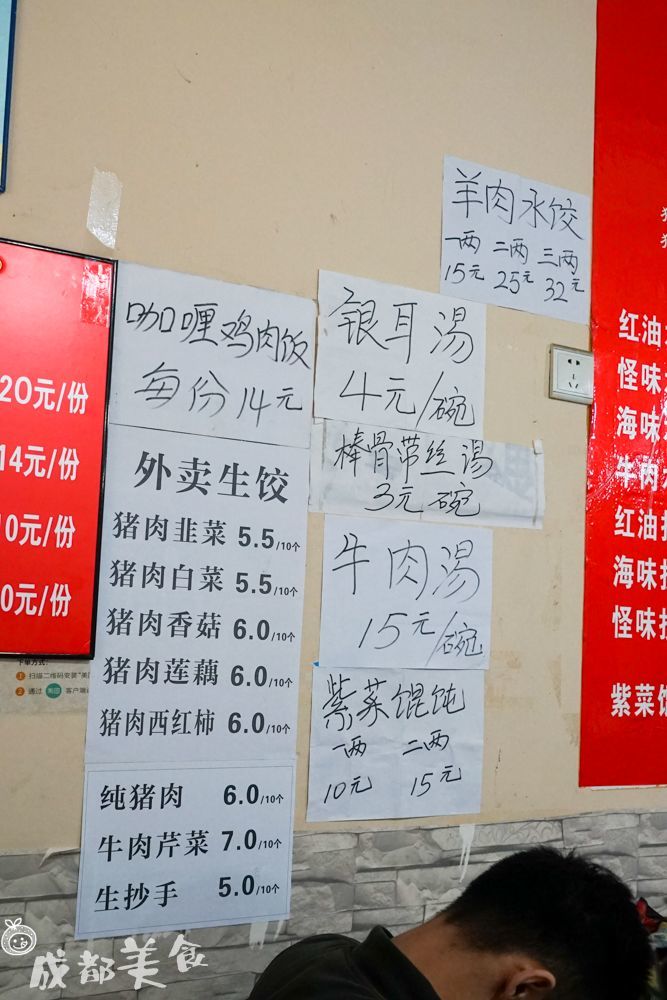 20元/份
14元/份
10元/份
0元/份
下单方式：
扫描二维码安装"美团
通过 美团 客户端
咖喱鸡肉饭
每份14元
外卖生饺
猪肉韭菜 5.5/10个
猪肉白菜 5.5/10个
猪肉香菇 6.0/10个
猪肉莲藕 6.0/10个
猪肉西红柿 6.0/10个
纯猪肉 6.0/10个
牛肉芹菜 7.0/10个
生抄手 5.0/10个
银耳汤
4元/碗
棒骨带丝汤
3元碗
牛肉汤
15元/碗
紫菜馄饨
一两 二两
10元 15元
羊肉水饺
一两 二两 三两
15元 25元 32元
红油
怪味
海味
牛肉
红油抄
海味抄
怪味抄
紫菜馄
成都美食